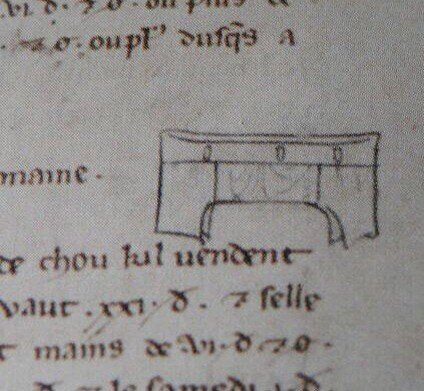 .vi. d. ⁊ o. ou plus
⁊ o. ou pl' dusq̃s a
maine.
de chou kil uendent
vaut .xxi. d. ⁊ selle
t mains de .vi. d. ⁊ o.
d. ⁊ le samedi .i. d.